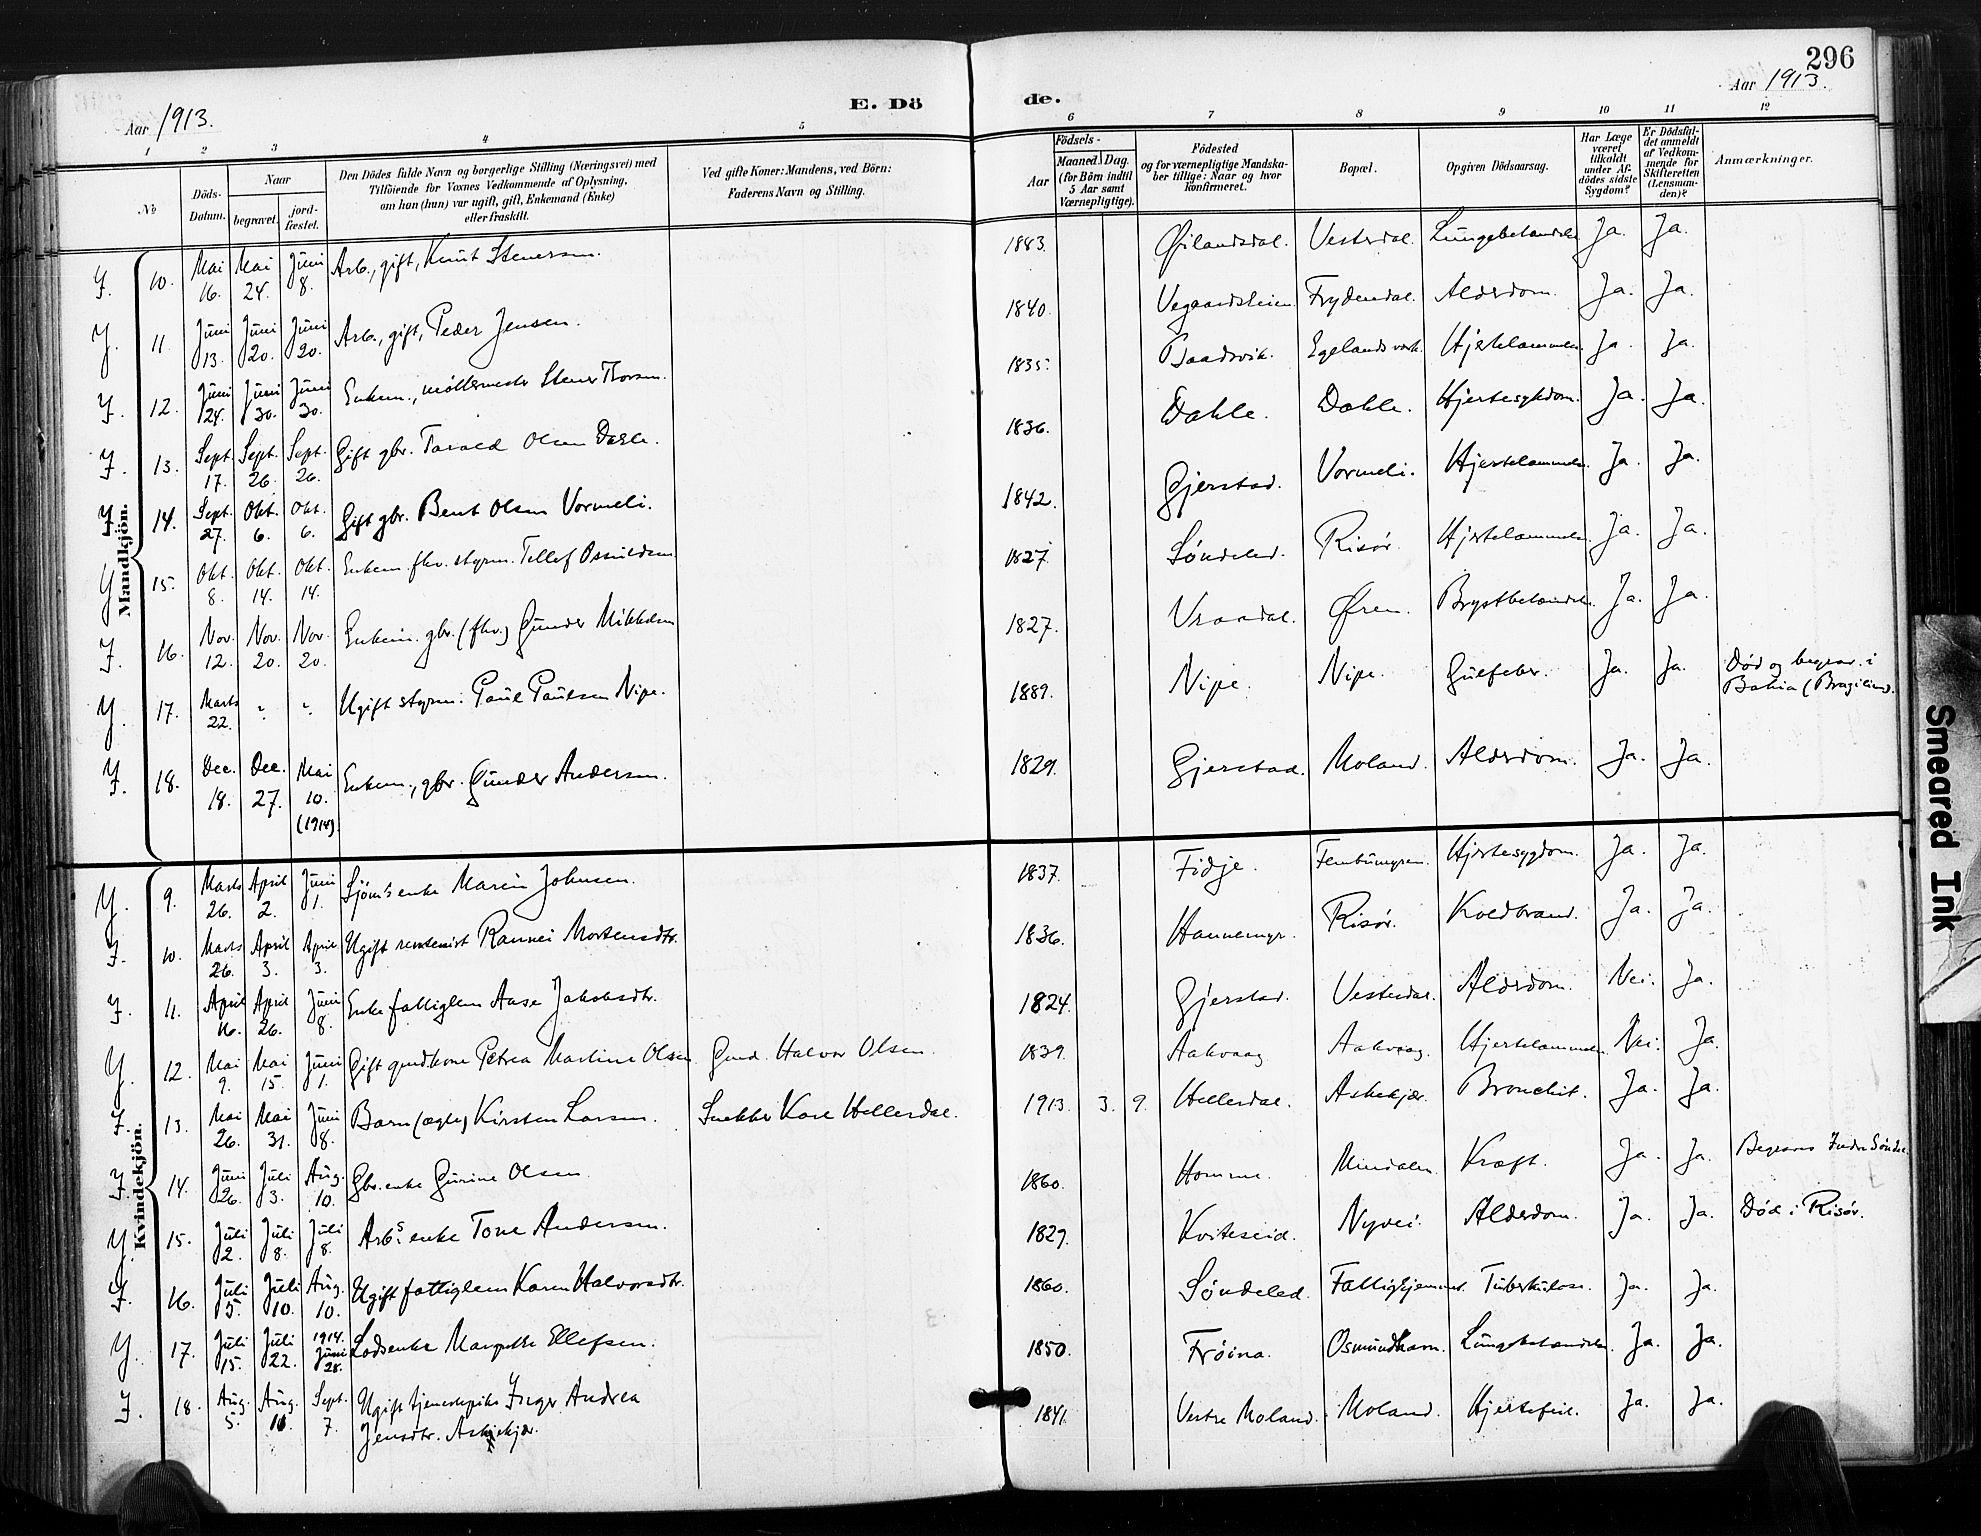 296
Aar 1913.
E. Dö
de.
Aar 1913.
1 2 3 4 5 6 7 8 9 10 11 12
№
Döds-Datum.
Naar
begravet.
jord-fæstet.
Den Dödes fulde Navn og borgerlige Stilling (Næringsvei) med
Tilföiende for Voxnes Vedkommende af Oplysning,
om han (hun) var ugift, gift, Enkemand (Enke)
eller fraskilt.
Ved gifte Koner: Mandens, ved Börn:
Faderens Navn og Stilling.
Födsels-
Aar
Maaned. Dag.
(for Börn indtil
5 Aar samt
Værnepligtige).
Födested
og for værnepligtige Mandska-
ber tillige: Naar og hvor
konfirmeret.
Bopæl.
Opgiven Dödsaarsag.
Har Læge
været
tilkaldt
under Af-
dödes sidste
Sygdom?
Er Dödsfal-
det anmeldt
af Vedkom-
mende for
Skifteretten
(Lensman-
den)?
Anmærkninger.
Mandkjön.
10. Mai 16. Mai 24. Juni 8. Arb., gift, Knut Stenersen. 1843. Øilandsdal. Vesterdal. Lungebetændelse Ja. Ja.
11. Juni 13. Juni 20. Juni 20. Arb., gift, Peder Jensen. 1840. Vegaardsheien. Frydendal. Alderdom. Ja. Ja.
12. Juni 24. Juni 30. Juni 30. Enkem., møllemester Stener Thorsen. 1835. Baasvik. Egelandsverk. Hjertelammelse. Ja. Ja.
13. Sept. 17. Sept. 26. Sept. 26. Gift gbr. Tarald Olsen Dahle. 1836. Dahle. Dahle. Hjertesykdom. Ja. Ja.
14. Sept. 27. Okt. 6. Okt. 6. Gift gbr. Bent Olsen Vormeli. 1842. Gjerstad. Vormeli. Hjertelammelse. Ja. Ja.
15. Okt. 8. Okt. 14. Okt. 14. Enkem. fhv. styrm. Tellef Osuldsen 1827. Søndeled. Risør. Hjertelammelse. Ja. Ja.
16. Nov. 12. Nov. 20. Nov. 20. Enkem. gbr. (fhv.) Gunder Mikkelsen 1827. Vraadal. Øren. Brystbetændelse. Ja. Ja.
17. Marts 22. ? ? Ugift styrm. Paul Paulsen Nipe. 1889. Nipe. Nipe. Gulfeber. Ja. Ja. Død og begrav. i
Bahia (Brazilien).
18. Dec. 18. Dec. 27. Mai 10. (1914). Enkem., gbr. Gunder Andersen. 1829. Gjerstad. Moland. Alderdom. Ja. Ja.
Kvindekjön.
9. Marts 26. April 2. Juni 1. Sjøm.s enke Maren Johnsen. 1837. Fidje. Fembumyren. Hjertesygdom. Ja. Ja.
10. Marts 26. April 3. April 3. Ugift rentenist Rannei Mortensdtr. 1836. Hannemyr. Risør. Koldbrand. Ja. Ja.
11. April 16. April 26. Juni 8. Enke fattiglem Aase Jakobsdtr. 1824. Gjerstad. Vesterdal. Alderdom. Nei. Ja.
12. Mai 9. Mai 15. Juni 1. Gift gmd.kone Petrea Martine Olsen Gmd. Halvor Olsen. 1839. Aakvaag Aakvaag. Hjertelammelse. Nei. Ja.
13. Mai 26. Mai 31. Juni 8. Barn (ægte) Kirsten Larsen. Snekker Kare Hellerdal. 1913. 3. 9. Hellerdal. Askekjær. Bronchit. Ja. Ja.
14. Juni 26. Juli 3. Aug. 10. Gbr.enke Gurine Olsen 1860. Homme. Mindalen. Kræft. Ja. Ja. Begraves Indre Søndel.
15. Juli 2. Juli 8. Juli 8. Arb.s enke Tone Andersen. 1829. Kviteseid. Nyvei. Alderdom. Ja. Ja. Død i Risør.
16. Juli 5. Juli 10. Aug. 10. Ugift fattiglem Karen Halvorsdtr. 1860. Søndeled. Fattighjemmet. Tuberkulose. Ja. Ja.
17. Juli 15. Juli 22. 1914. Juni 28. Lodsenke Margrethe Ellefsen. 1850. Frøina. Osmundhavn. Lungebetændelse. Ja. Ja.
18. Aug. 5. Aug. 10. Sept. 7. Ugift tjenestepike Inger Andrea
Jensdtr. Askekjær. 1841. Vestre Moland. Moland. Hjertefeil. Ja. Ja.
Smeared Ink